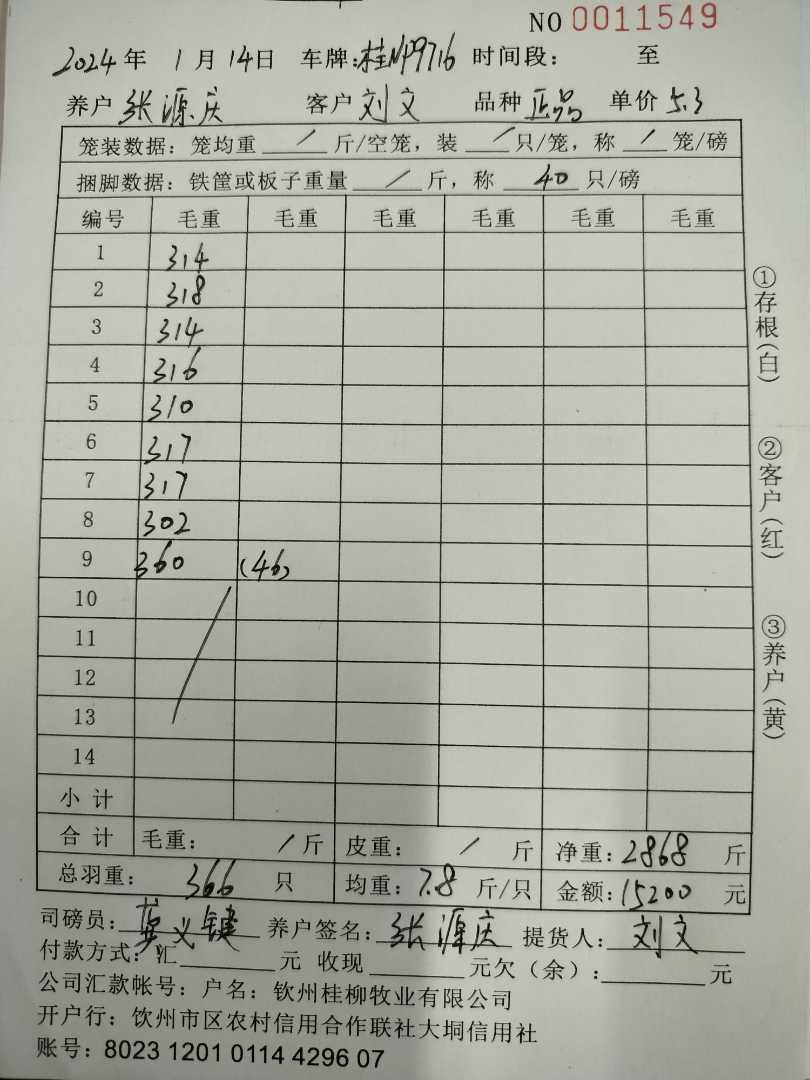 NO 0011549
2024年 1月14日 车牌:桂NP9716 时间段: 至
养户 张源庆 客户 刘文 品种 正品 单价 5.3
笼装数据: 笼均重 / 斤/空笼, 装 / 只/笼, 称 / 笼/磅
捆脚数据: 铁筐或板子重量 / 斤, 称 40 只/磅
编号 毛重 毛重 毛重 毛重 毛重 毛重
1 314
2 318
3 314
4 316
5 310
6 317
7 317
8 302
9 360 (46)
10
11
12
13
14
小计
合计 毛重: / 斤 皮重: / 斤 净重: 2868 斤
总羽重: 366 只 均重: 7.8 斤/只 金额: 15200 元
司磅员: 义键 养户签名: 张源庆 提货人: 刘文
付款方式: 汇 元 收现 元欠(余): 元
公司汇款帐号: 户名: 钦州桂柳牧业有限公司
开户行: 钦州市区农村信用合作联社大垌信用社
账号: 8023 1201 0114 4296 07
①存根(白)
②客户(红)
③养户(黄)